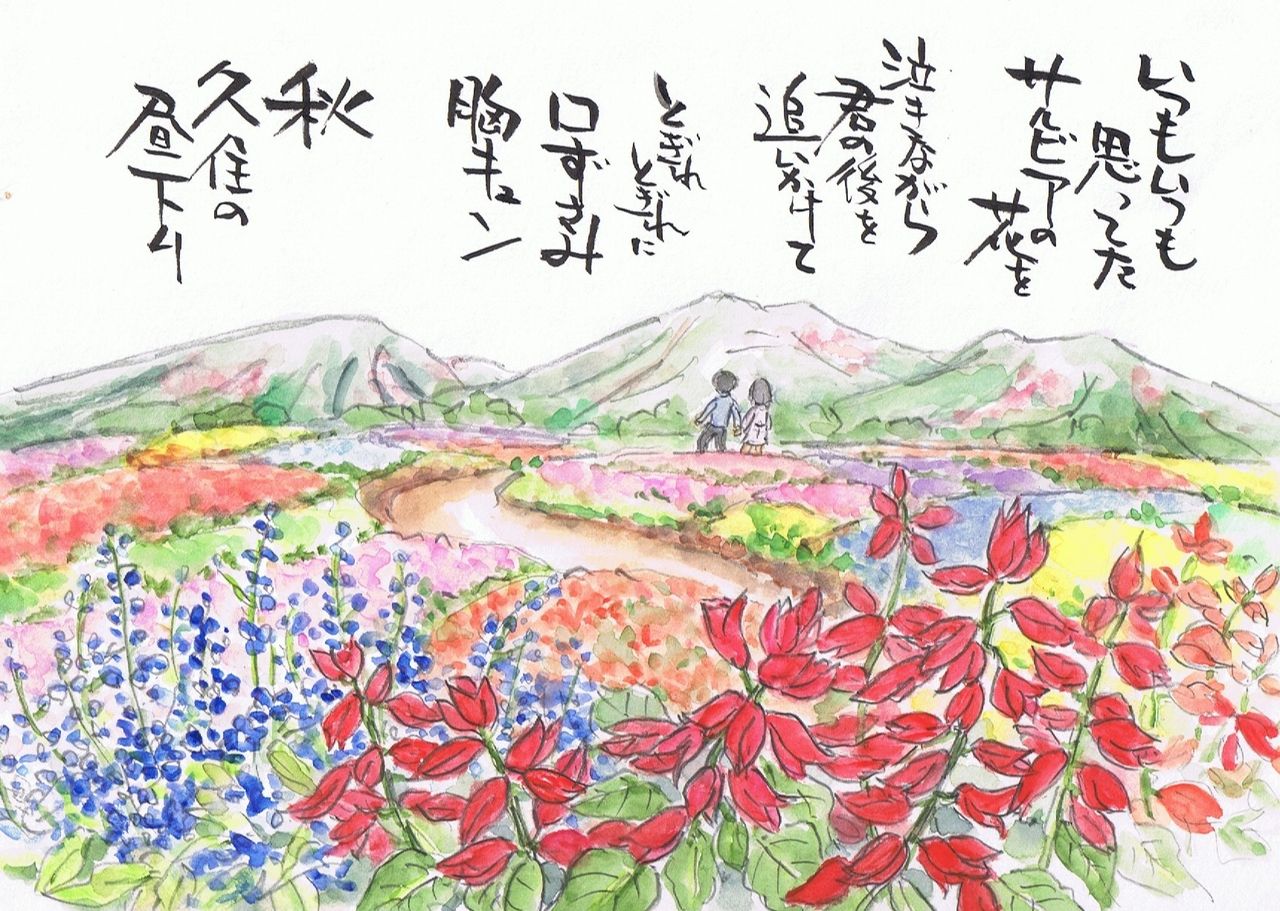 いつもいつも
思ってた
サルビアの
花を
泣きながら
君の後を
追いかけて
とぎれ
とぎれに
口ずさみ
胸キュン
秋
久住の
昼下り